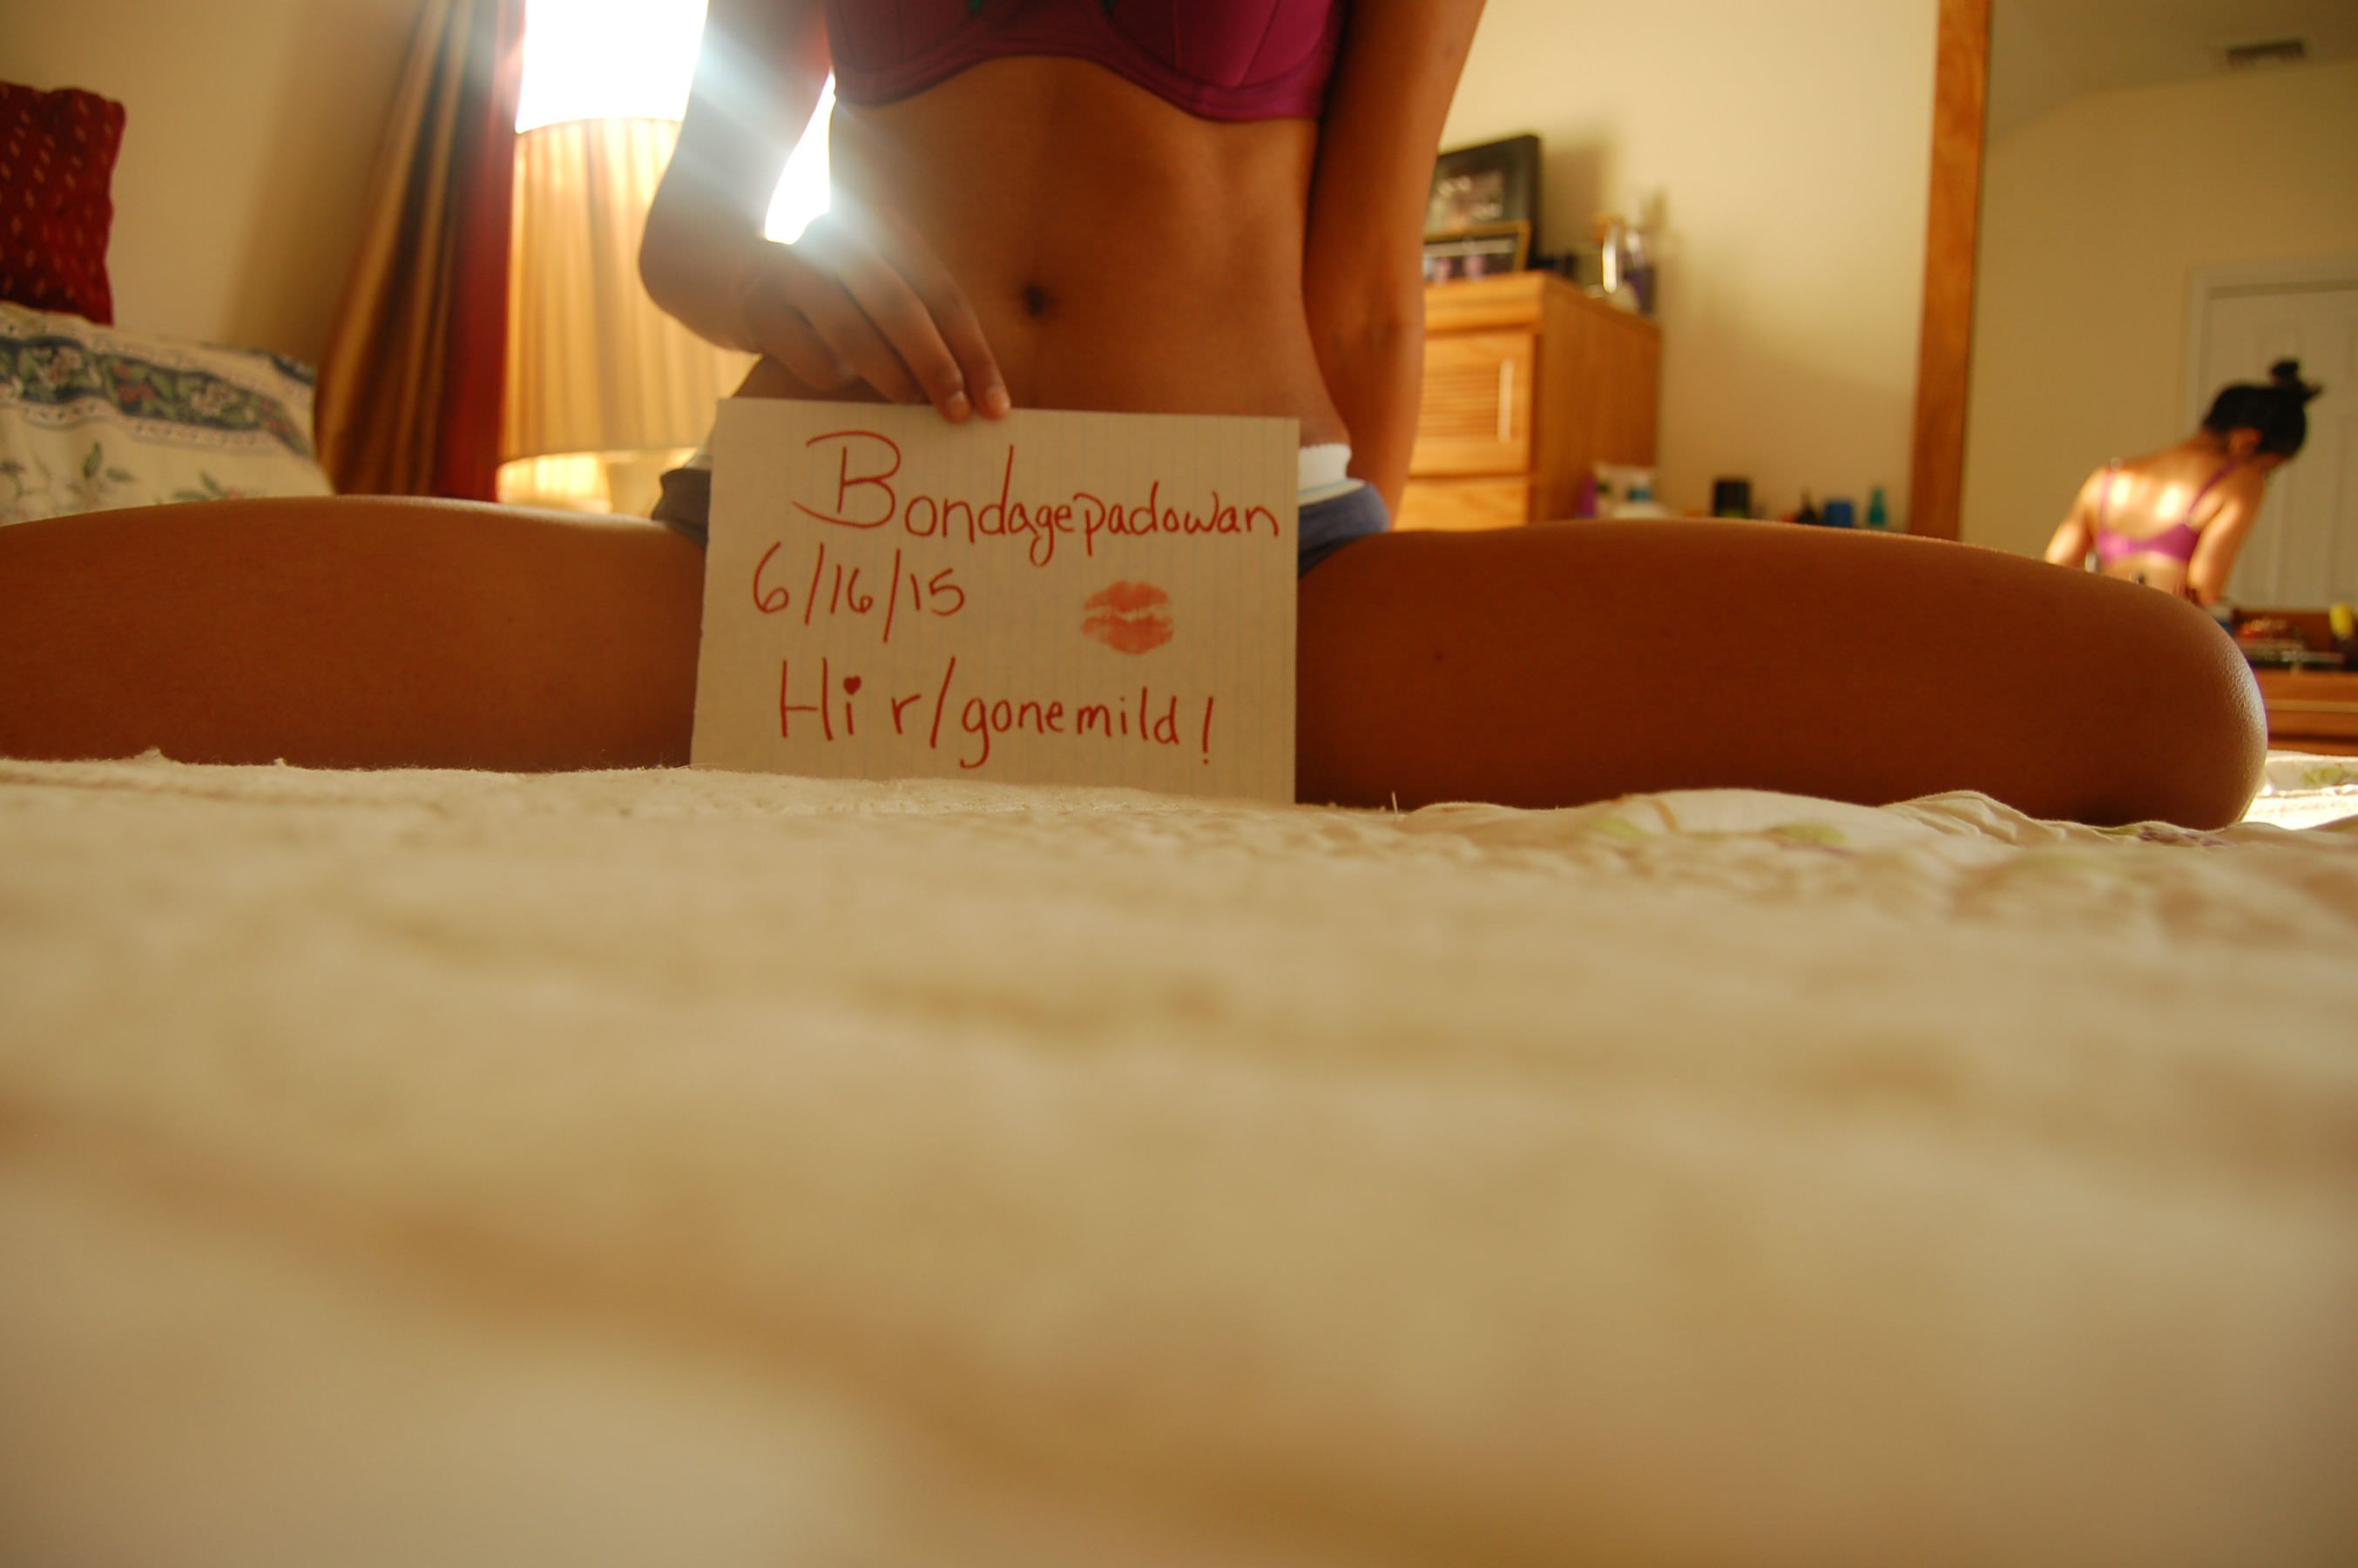 Bondagepadowan
6/16/15
Hi r/gonemild!